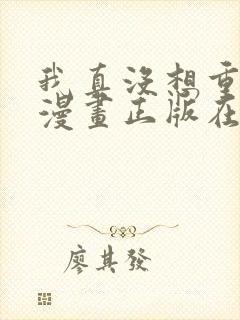 我真沒想重
漫畫正版在
廖其發